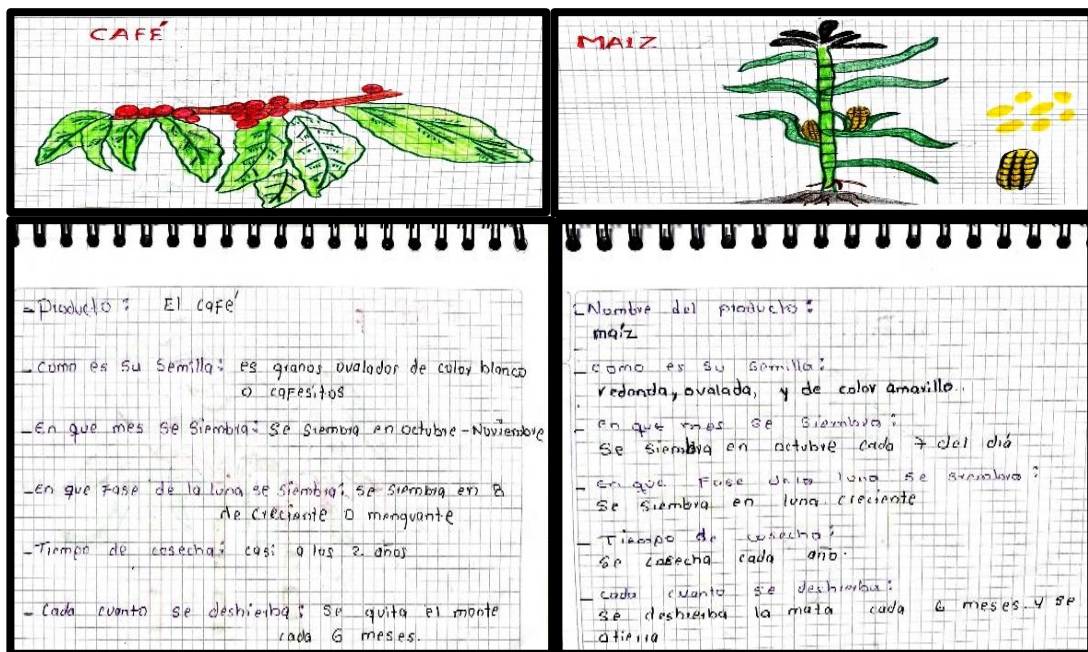 CAFÉ
- Producto: El café
- Como es su semilla: es granos ovalados de color blanco
o cafesitos
- En que mes se siembra: Se siembra en octubre - Noviembre
- En que fase de la luna se siembra: se siembra en 8
de creciente o menguante
- Tiempo de cosecha: casi a los 2 años
- Cada cuanto se deshierba: Se quita el monte
cada 6 meses.
MAIZ
- Nombre del producto:
maíz
- como es su semilla:
redonda, ovalada, y de color amarillo.
- en que mes se siembra:
Se siembra en octubre cada 7 del diá
- en que Fase de la luna se siembra:
Se siembra en luna creciente
- Tiempo de cosecha:
Se cosecha cada año.
- cada cuanto se deshierba:
Se deshierba la mata cada 6 meses y se
atierra